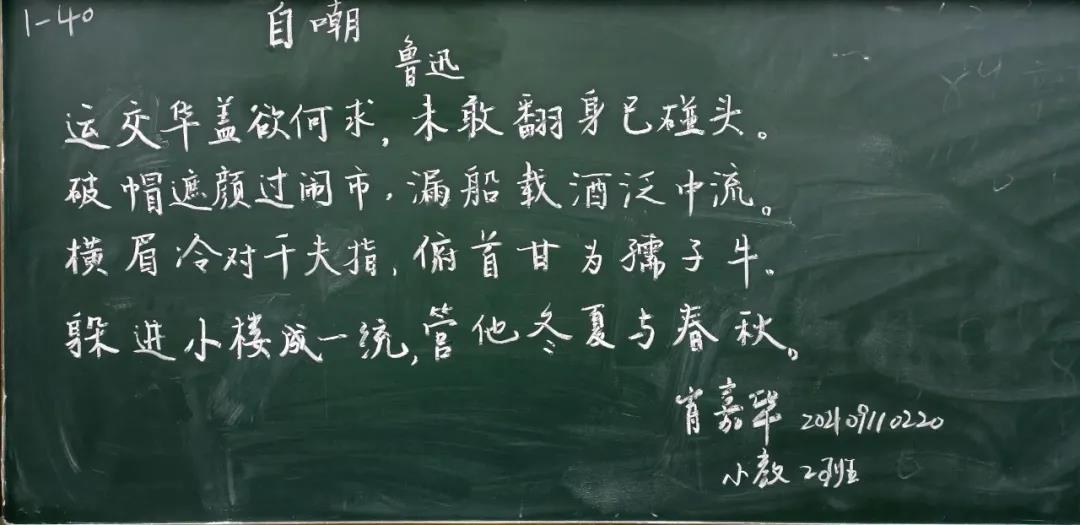 1-40
自嘲
鲁迅
运交华盖欲何求,未敢翻身已碰头。
破帽遮颜过闹市,漏船载酒泛中流。
横眉冷对千夫指,俯首甘为孺子牛。
躲进小楼成一统,管他冬夏与春秋。
肖嘉华 202109110220
小教2班